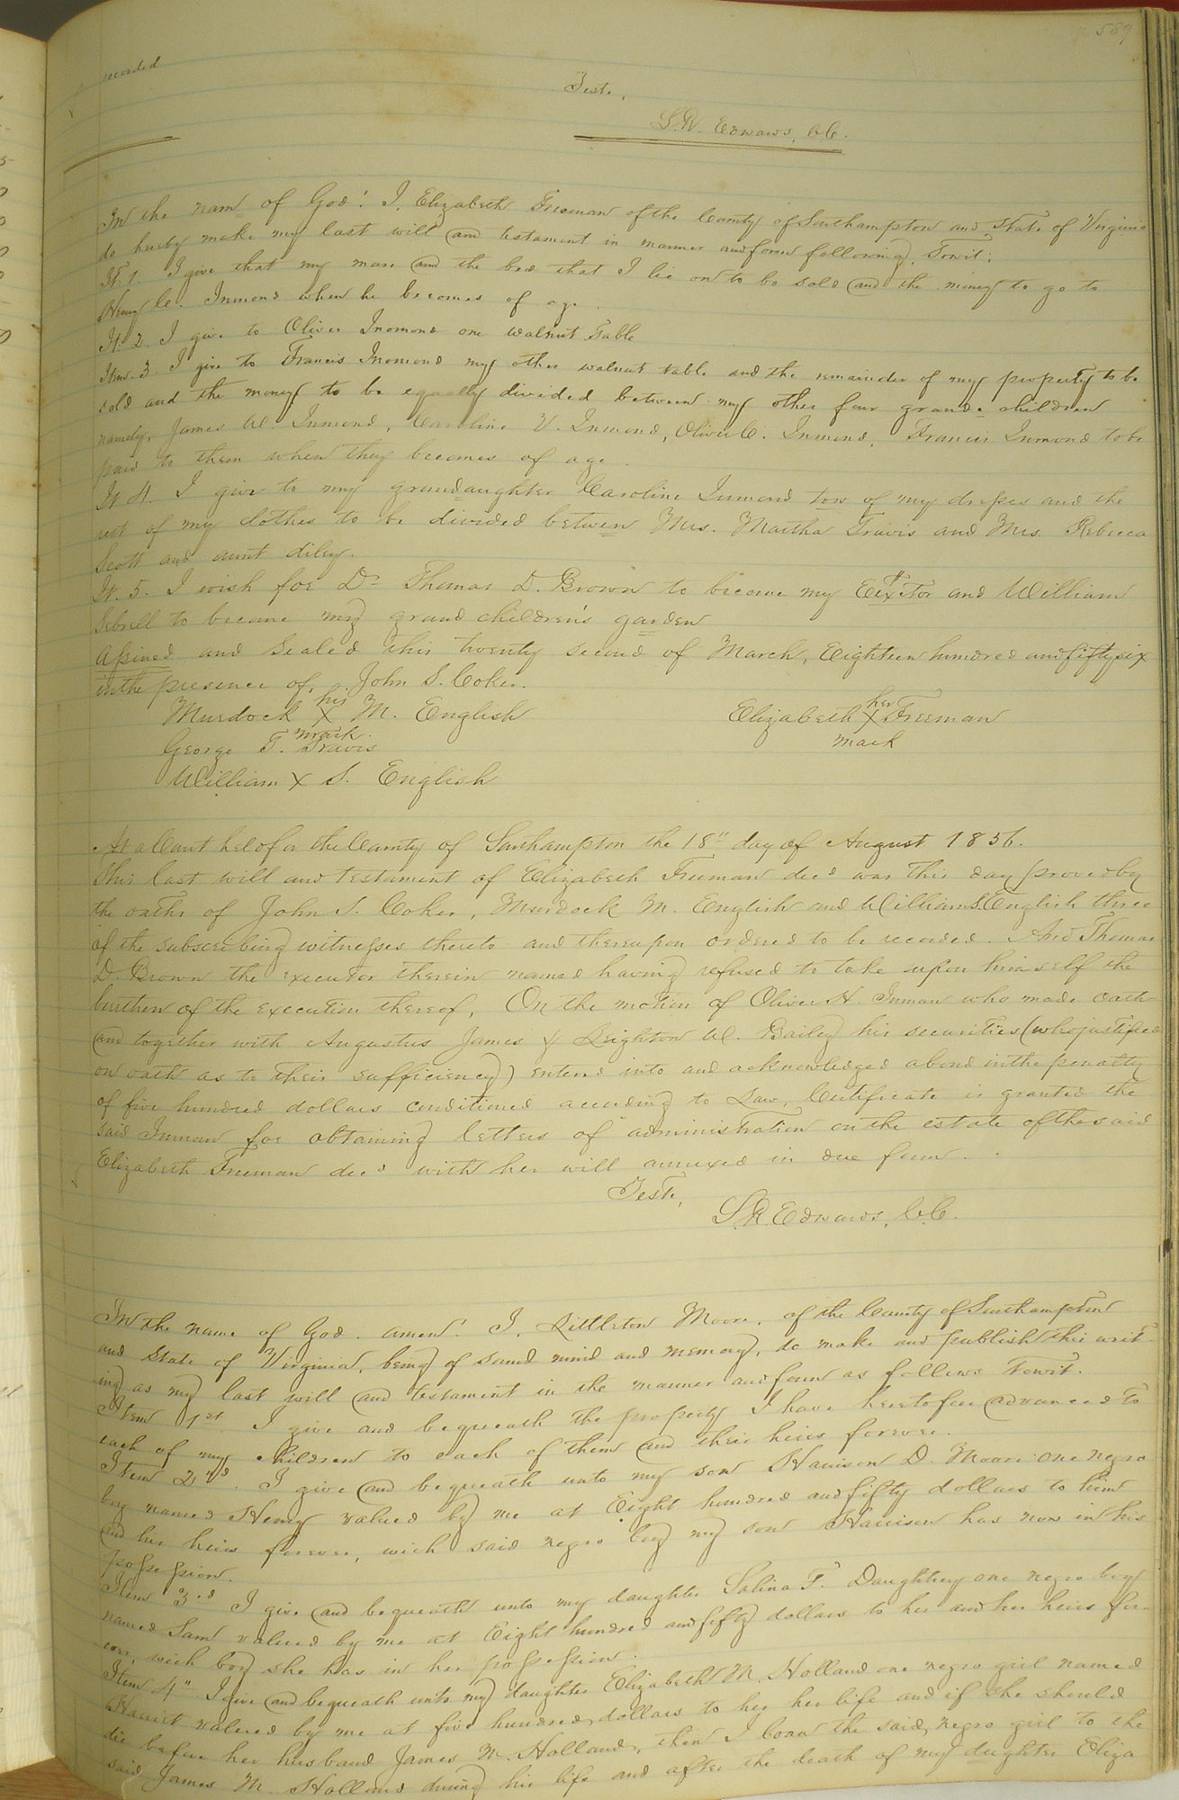 589
recorded
Teste,
S.R. Edwards, C.C.
In the nam of God! I, Elizabeth Freeman of the County of Southampton and State of Virginia
do hereby make my last will and testament in manner and form following, Towit:
It. 1. I give that my mare and the bed that I lie on to be sold and the money to go to
Henry C. Inmond when he becomes of age.
It. 2 I give to Oliver Inomond one walnut Table
Item. 3. I give to Francis Inomond my other walnut table and the remainder of my property to be
sold and the money to be equally divided between my other four grande children
namely, James W. Inmond, Caroline V. Inmond, Oliver C. Inmond, Francis Inmond to be
paid to them when they becomes of age.
It. 4. I give to my grandaughter Caroline Inmond tow of my dresses and the
rest of my clothes to be divided betwen Mrs. Martha Travis and Mrs. Rebecca
Scott and aunt diley.
It. 5. I wish for Dr Thomas D. Brown to become my and William
Sebrell to become my grand children's garden
Assined and sealed this twenty second of March, Eighteen hundred and fifty six
in the presence of, John S. Coker.
Murdock his X M. English Elizabeth her X Freeman
mark mark
George T. Travis
William X S. English
At a Court held for the County of Southampton the 18" day of August 1856.
This last will and testament of Elizabeth Freeman decd was this day proved by
the oaths of John S. Coker, Murdock M. English and William S. English three
of the subscribing witnesses thereto and thereupon ordered to be recorded. And Thomas
D. Brown the executor therein named having refused to take upon himself the
burthen of the execution thereof, On the motion of Oliver H. Inman who made oath
and together with Augustus James & Leighton W. Bailey his securities (who justified
on oath as to their sufficiency) entered into and acknowledged a bond in the penalty
of five hundred dollars conditioned according to Law, Certificate is granted the
said Inman for obtaining letters of administration on the estate of the said
Elizabeth Freeman decd with her will annexed in due form.
Teste,
S.R. Edwards, C.C.
In the name of God. amen. I, Littleton Moore, of the County of Southampton
and State of Virginia, being of sound mind and memory, do make and publish this writ-
ing as my last will and testament in the manner and form as follows Towit.
Item 1st I give and bequeath the property I have heretofore advanced to
each of my children to each of them and their heirs forever.
Item 2nd. I give and bequeath unto my son Harrison D. Moore one negro
boy named Henry valued by me at Eight hundred and fifty dollars to him
and his heirs forever, wich said negro boy my son Harrison has now in his
possession.
Item 3rd I give and bequeath unto my daughter Salina F. Daughtrey one negro boy
named Sam valued by me at Eight hundred and fifty dollars to her and her heirs for-
ever, wich boy she has in her possession.
Item 4" I give and bequeath unto my daughter Elizabeth M. Holland one negro girl named
Harriet valued by me at five hundred dollars to her her life and if she should
die before her husband James M. Holland, then I loan the said negro girl to the
said James M. Holland during his life and after the death of my daughter Eliza